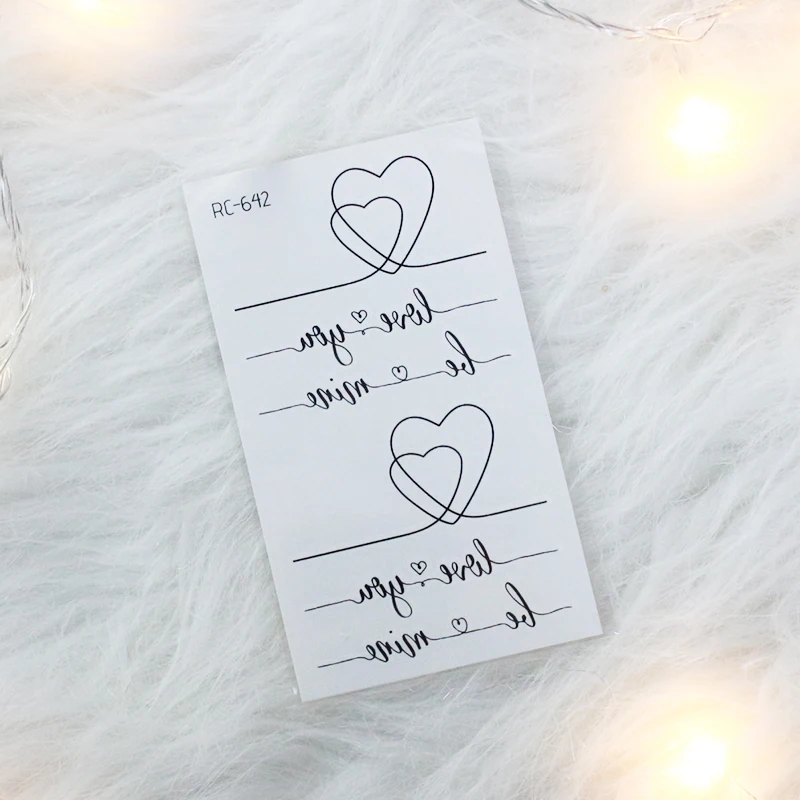 RC-642
love you
be mine
love you
be mine